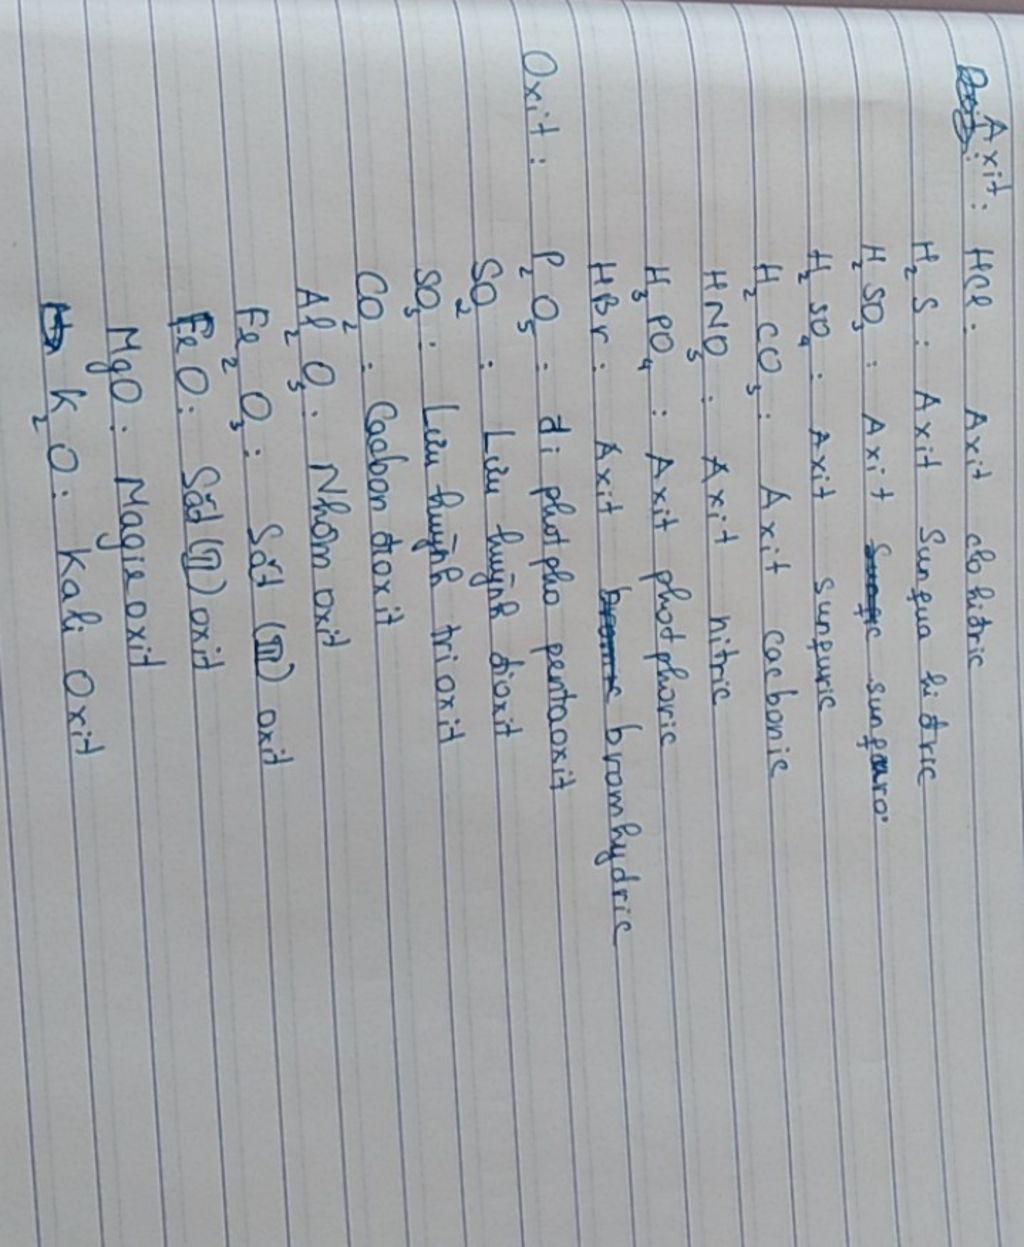 Axit: HCl: Axit clohiđric
H₂S: Axit Sunfua hiđric
H₂SO₃: Axit sunfurơ
H₂SO₄: Axit sunfuric
H₂CO₃: Axit cacbonic
HNO₃: Axit nitric
H₃PO₄: Axit photphoric
HBr: Axit bromhydric
Oxit: P₂O₅: đi photpho pentaoxit
SO₂: Lưu huỳnh đioxit
SO₃: Lưu huỳnh trioxit
CO₂: Cacbon đioxit
Al₂O₃: Nhôm oxit
Fe₂O₃: Sắt (III) oxit
FeO: Sắt (II) oxit
MgO: Magie oxit
K₂O: Kali Oxit